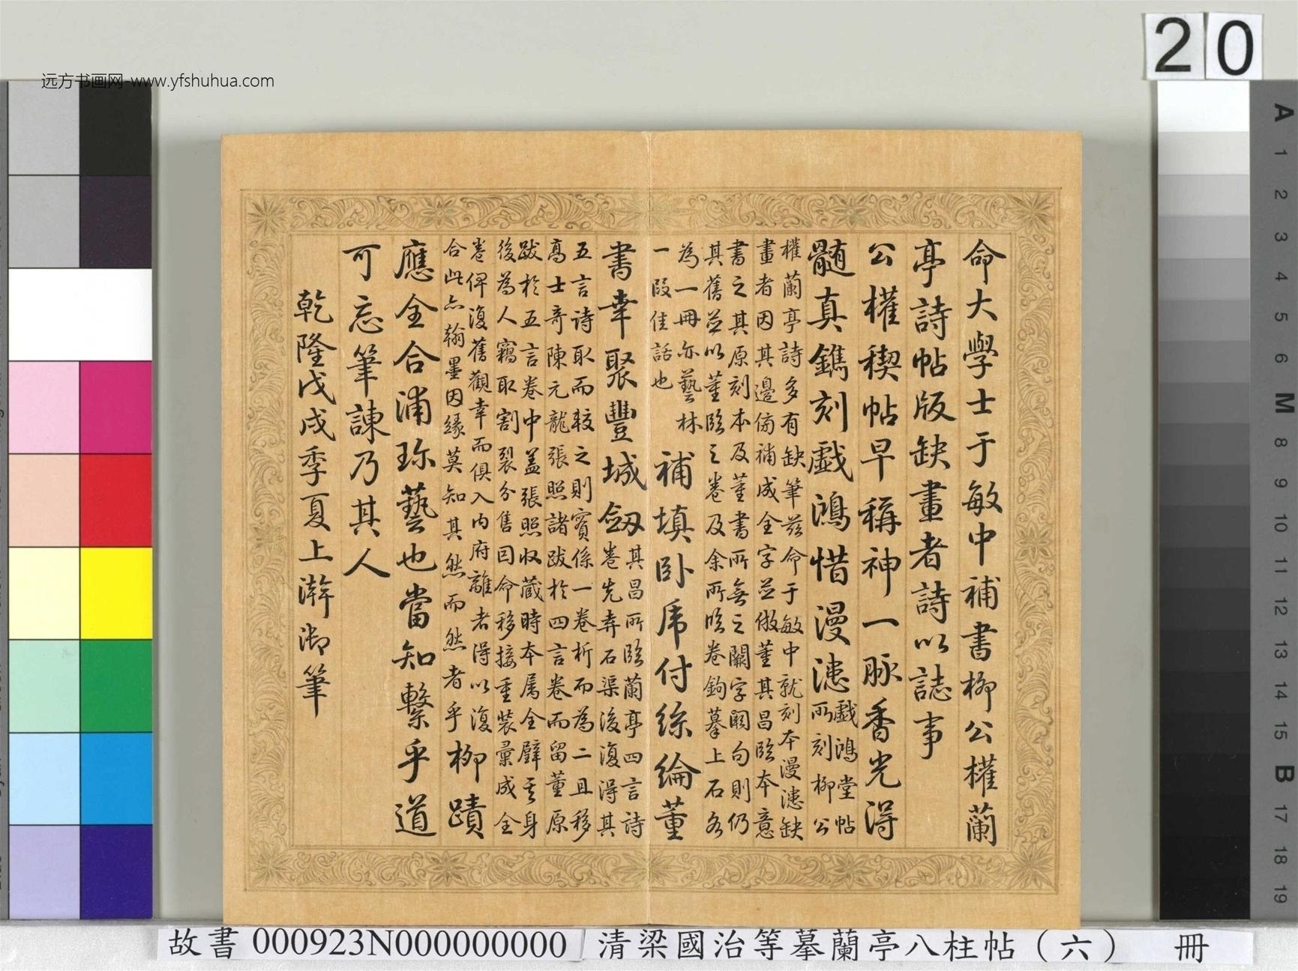 20
远方书画网-www.yfshuhua.com
命大學士于敏中補書柳公權蘭
亭詩帖版缺畫者詩以誌事
公權稧帖早稱神一脈香光得
髓真鐫刻戲鴻惜漫漶戲鴻堂帖
所刻柳公
權蘭亭詩多有缺筆茲命于敏中就刻本漫漶缺
畫者因其邊傍補成全字並倣董其昌臨本意
書之其原刻本及董書所無之闕字闕句則仍
其舊並以董臨之卷及余所臨卷鉤摹上石各
為一冊亦藝林
一段佳話也
補填卧帋付絲綸董
書幸聚豐城劒其昌所臨蘭亭四言詩
卷先弆石渠後復得其
五言詩取而較之則實係一卷析而為二且移
高士奇陳元龍張照諸跋於四言卷而留董原
跋於五言卷中蓋張照收藏時本屬全璧其身
後為人竊取割裂分售因命移接重裝彙成全
卷俾復舊觀幸而俱入内府離者得以復
合此亦翰墨因緣莫知其然而然者乎
柳蹟
應全合浦珎藝也當知繫乎道
可忘筆諫乃其人
乾隆戊戌季夏上澣御筆
A 1 2 3 4 5 6 M 8 9 10 11 12 13 14 15 B 17 18 19
故書 000923N000000000 清梁國治等摹蘭亭八柱帖（六） 冊